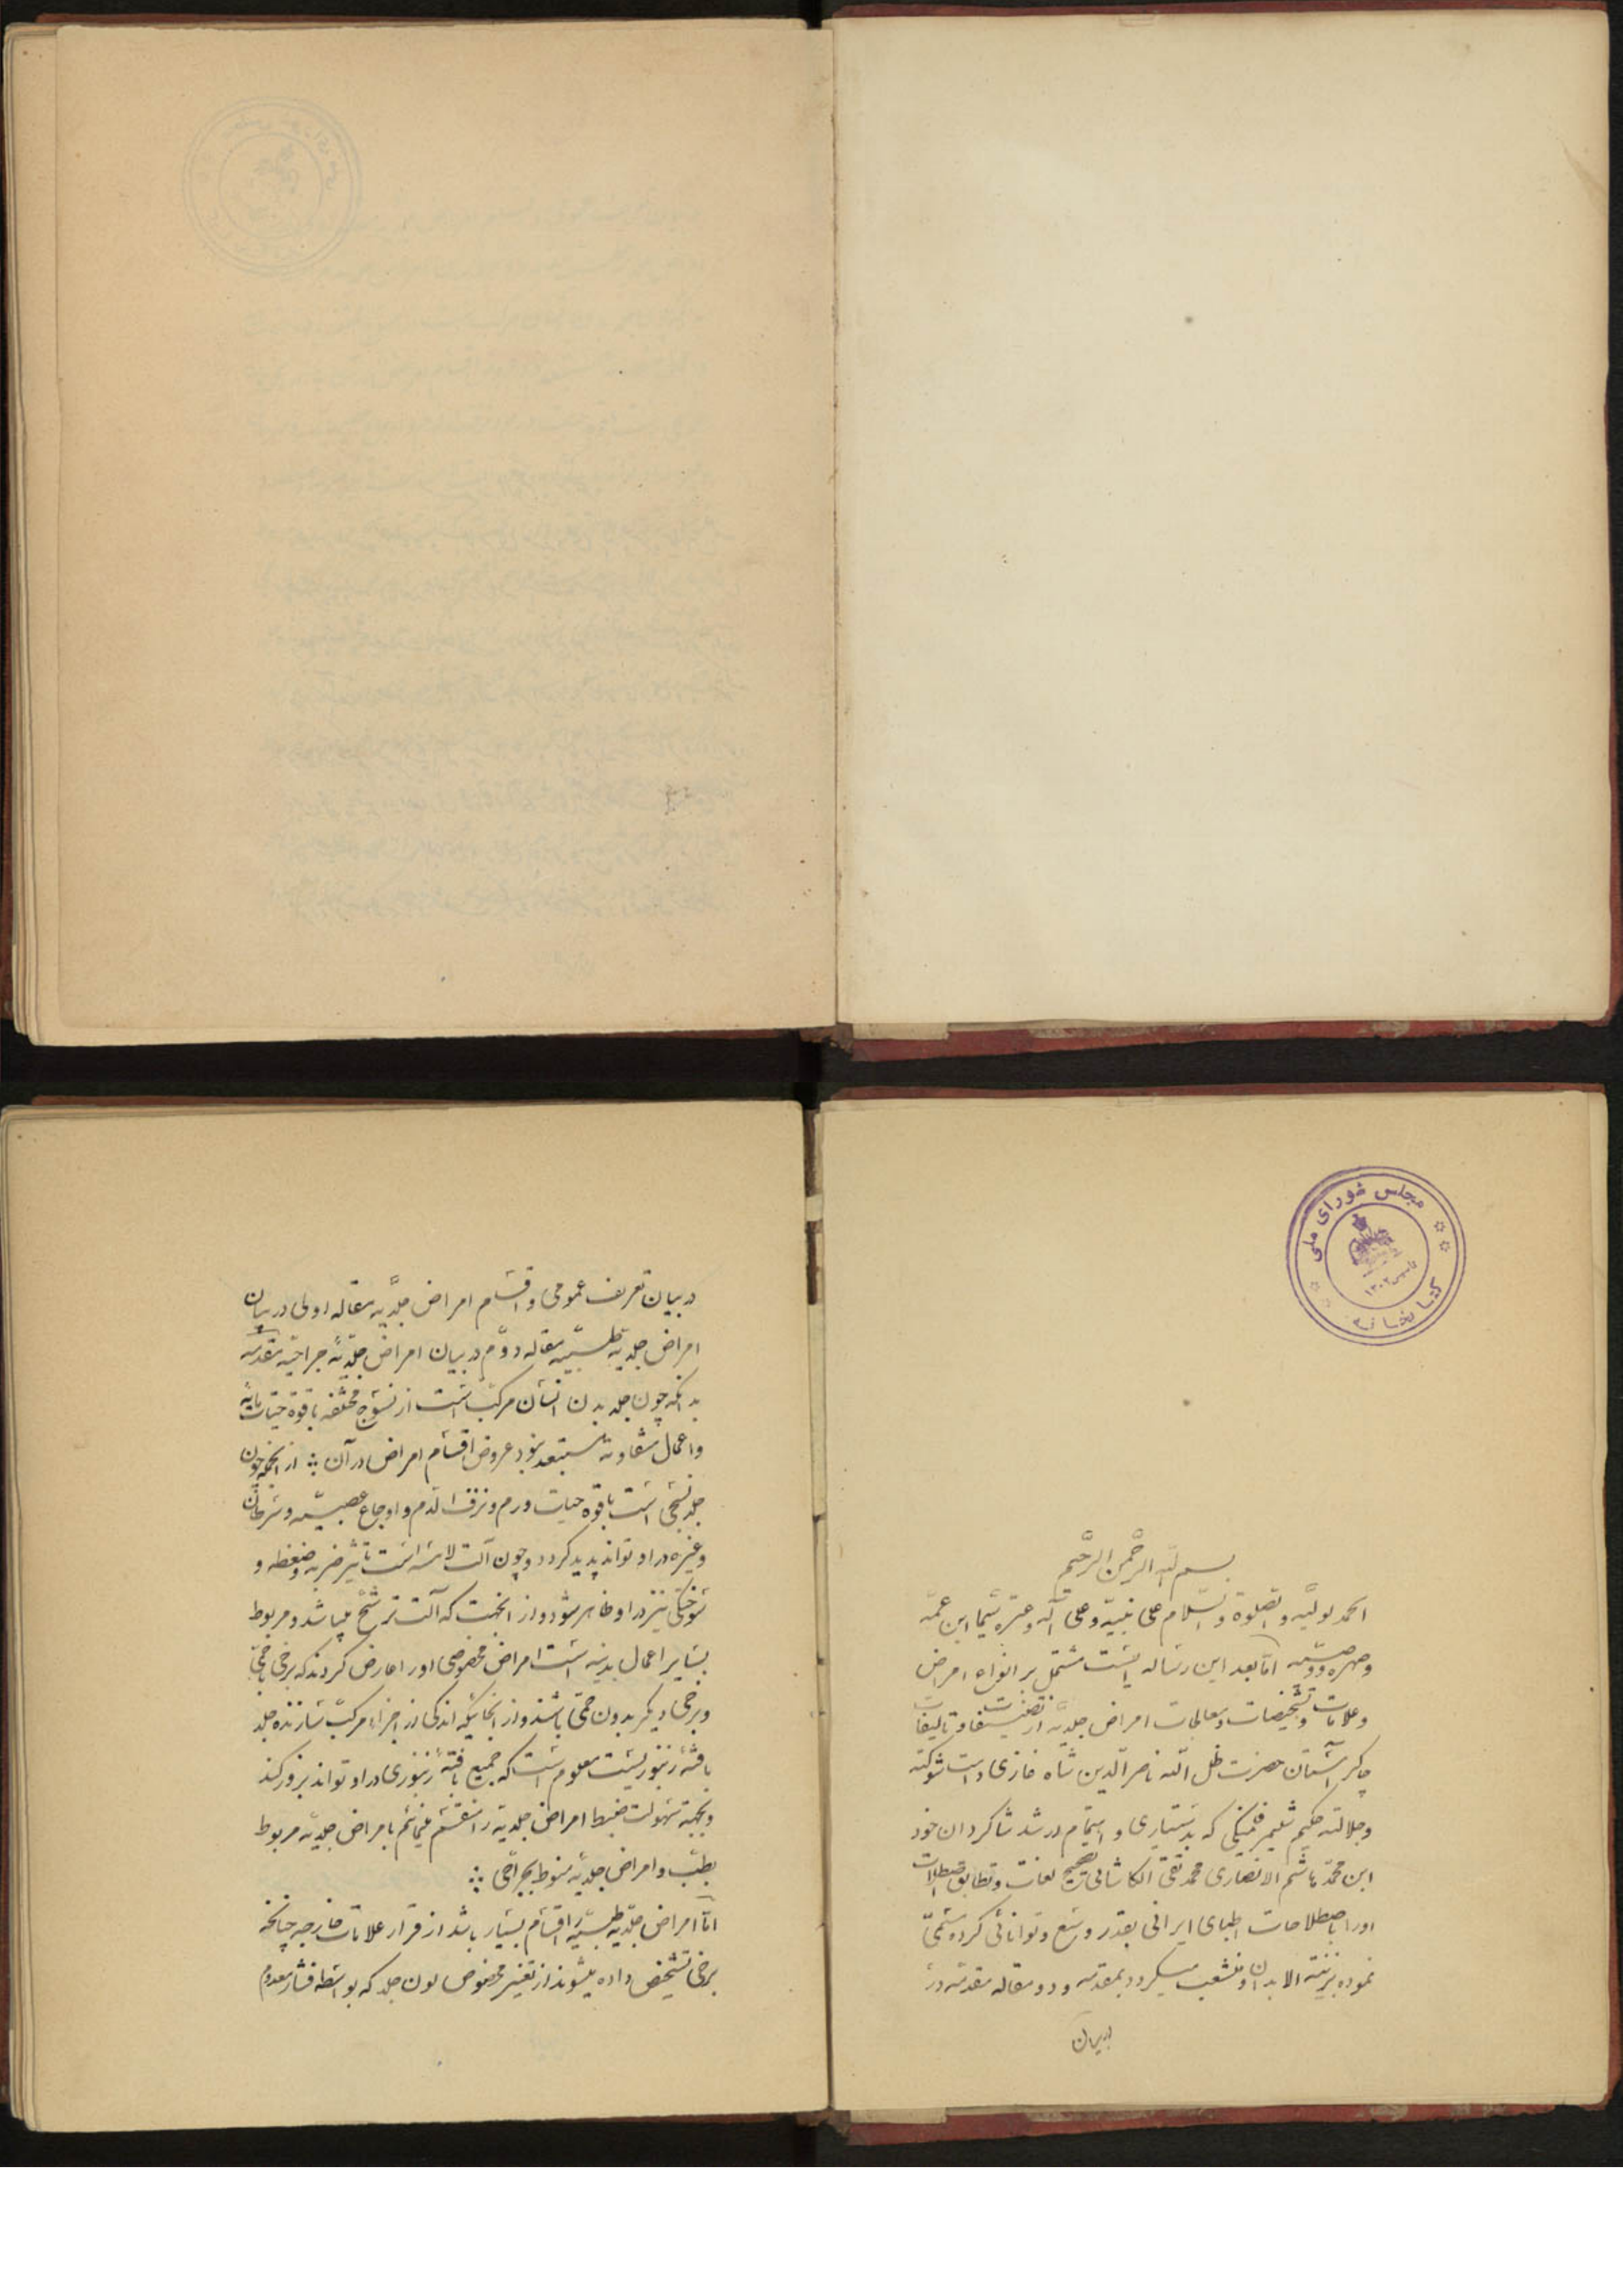 مجلس شورای ملی
کتابخانه
تاسیس ۱۳۰۲
بسم الله الرحمن الرحیم
الحمد لولیه والصلوة والسلام علی نبیه وعلی آله وعتره سیما ابن عمه
وصهره ووصیه اما بعد این رساله ایست مشتمل بر انواع امراض
وعلامات وتشخیصات ومعالجات امراض جلدیه از تصنیفات وتالیفات
چاکر آستان حضرت ظل الله ناصرالدین شاه غازی دامت شوکته
وجلالته حکیم شلیمر فلمنکی که بدستیاری و اهتمام ارشد شاکردان خود
ابن محمد هاشم الانصاری محمد تقی الکاشانی تصحیح لغات وتطابق اصطلاحات
اورا باصطلاحات اطبای ایرانی بقدر وسع وتوانائی کرده مسمی
نموده بزینة الابدان ومنشعب میکردد بمقدمه ودو مقاله مقدمه در
دربیان
دربیان تعریف عمومی واقسام امراض جلدیه مقاله اولی دربیان
امراض جلدیه طبیه مقاله دوم دربیان امراض جلدیه جراحیه مقدمه
بدانکه چون جلد بدن انسان مرکب است از نسوج مختلفه باقوه حیات
واعمال متفاوته مستبعد نبود عروض اقسام امراض در آن ؞ از انجمله چون
جلد نسجی است باقوه حیات ورم ونزف الدم واوجاع عصبیه وسرطان
وغیره در او تواند پدید کردد وچون آلت لامسه است تاثیر ضربه وضغطه و
سوختکی نیز در او ظاهر شود واز انجهت که آلت ترشح میباشد ومربوط
بسایر اعمال بدنیه است امراض مخصوصی اورا عارض کردند که برخی باحمی
وبرخی دیکر بدون حمی باشند واز انجائیکه اندکی از اجزاء مرکب سازنده جلد
بافته زنبوریست معلوم است که جمیع بافته زنبوری در او تواند بروز کند
وبجهة سهولت ضبط امراض جلدیه را منقسم مینمائیم بامراض جلدیه مربوط
بطب وامراض جلدیه منوط بجراحی ؞
اما امراض جلدیه طبیه را اقسام بسیار باشد از قرار علامات خارجه چنانکه
برخی تشخیص داده میشوند از تغییر مخصوص لون جلد که بواسطه فشار معدوم